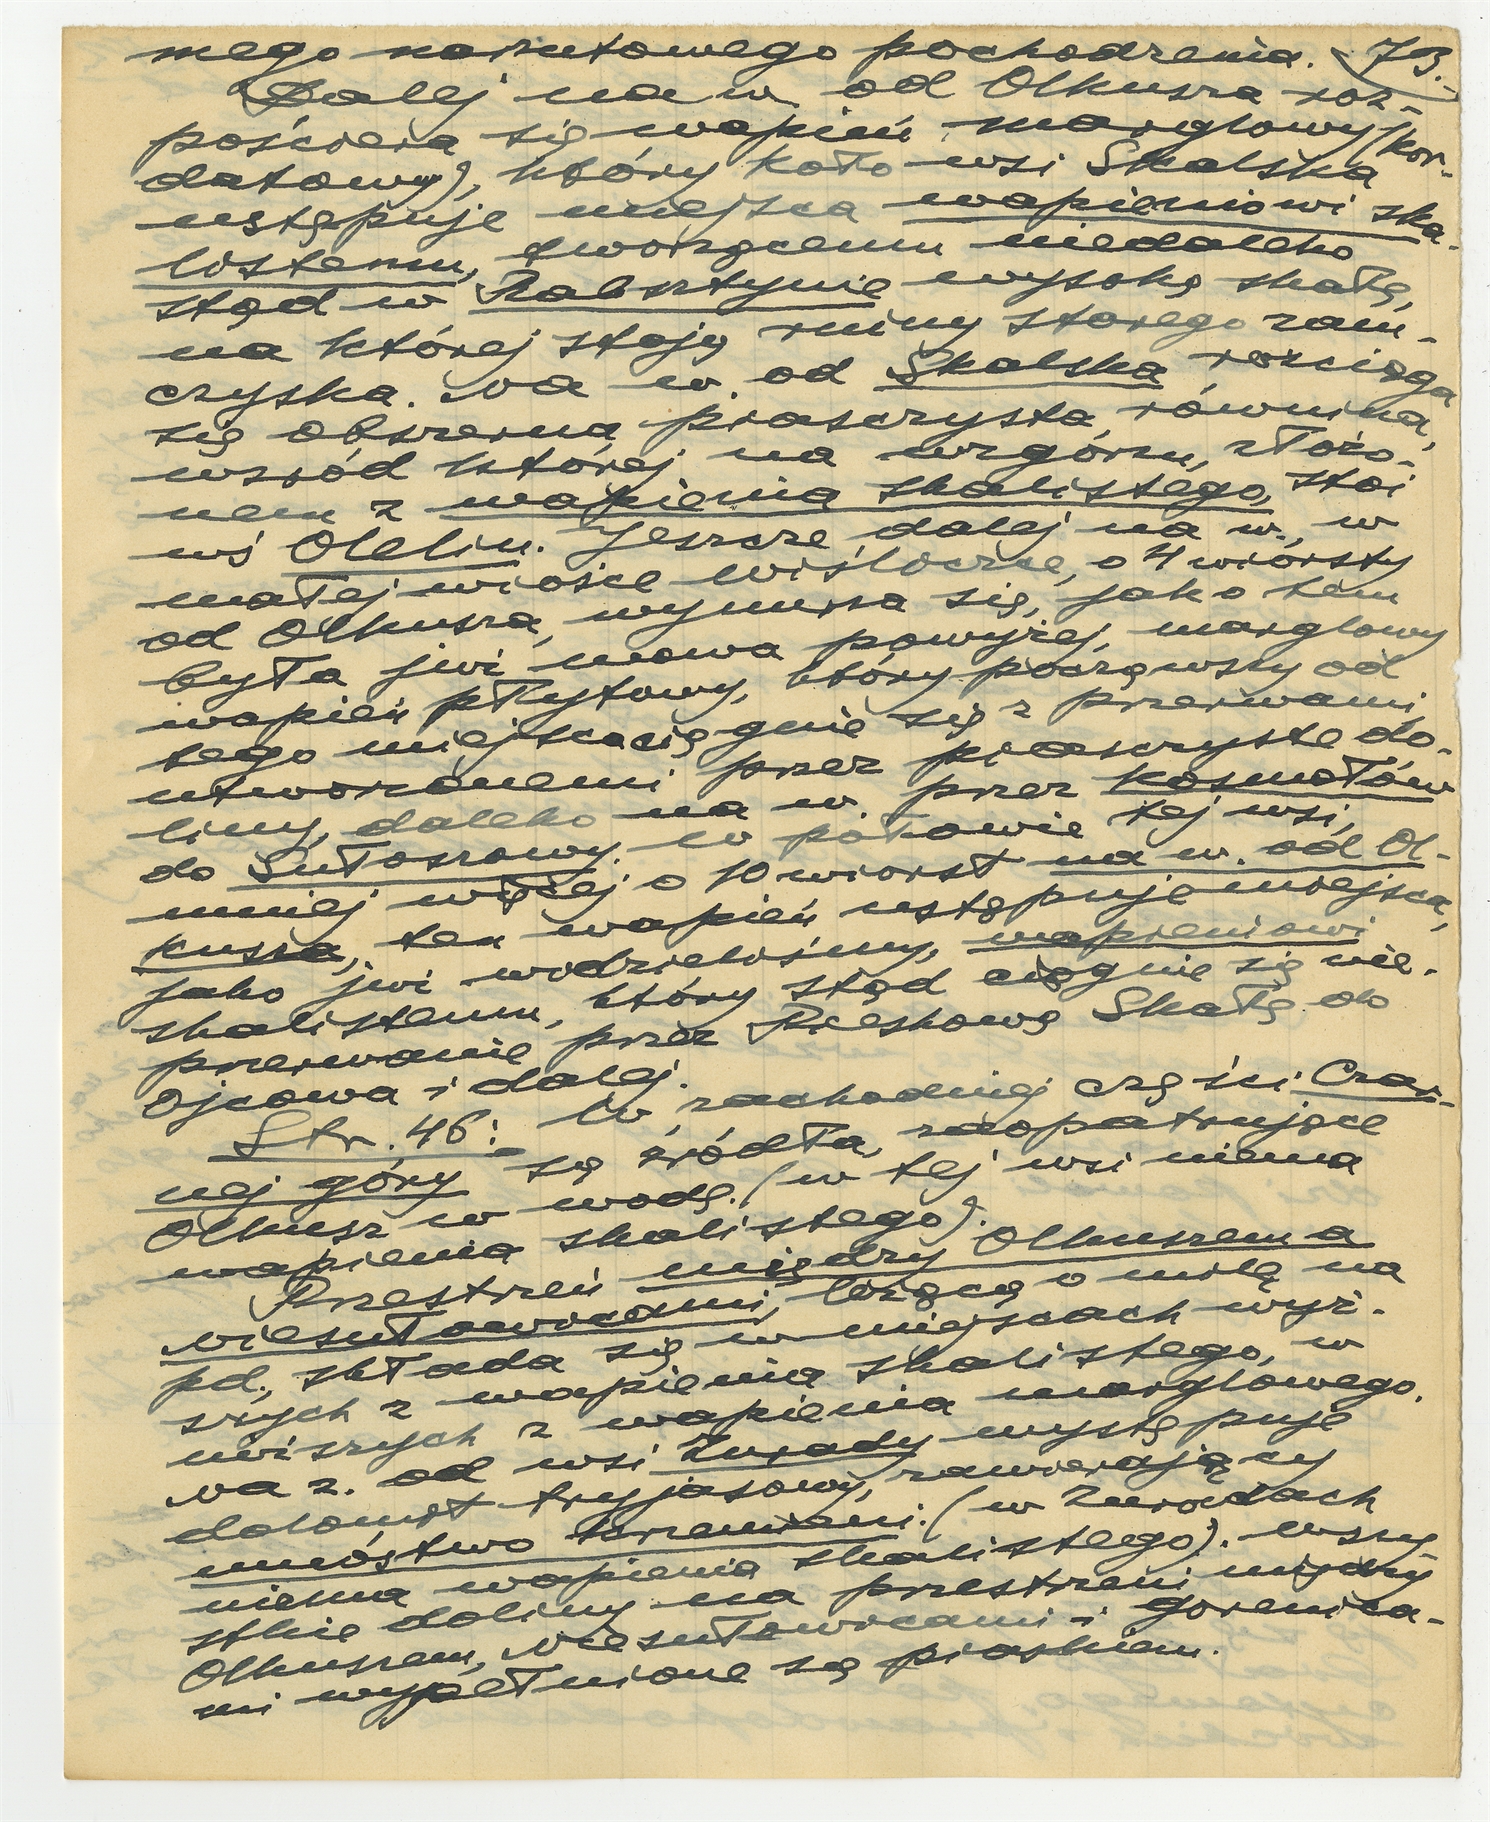 mego narzutowego pochodzenia. 73.
Dalej na w. od Olkusza roz-
pościera się wapień marglowy (kor-
datowy), który koło wsi Skalska
ustępuje miejsca wapieniowi ska-
listemu, tworzącemu niedaleko
stąd w Rabsztynie wysoką skałę,
na której stoją ruiny starego zam-
czyska. Na w. od Skalska rozciąga
się obszerna piaszczysta równina,
wśród której na wzgórzu, złożo-
nem z wapienia skalistego, stoi
wś Olelin. Jeszcze dalej na w., w
małej wiosce Wiśliczce, o 4 wiorsty
od Olkusza, wynurza się, jako tem
była już mowa powyżej, marglowy
wapień płytowy, który począwszy od
tego miejsca ciągnie się z przerwami
utworzonemi przez piaszczyste do-
liny, daleko na w. przez Kosmołów
do Sułoszowy. W połowie tej wsi,
mniej więcej o 10 wiorst na w. od Ol-
kusza, ten wapień ustępuje miejsca,
jako już widzieliśmy, wapieniowi
skalistemu, który stąd ciągnie się nie-
przerwanie przez Pieskową Skałę do
Ojcowa i dalej.
Str. 46: W zachodniej części Czar-
nej góry są źródła, zaopatrujące
Olkusz w wodę. (w tej wsi niema
wapienia skalistego).
Przestrzeń między Olkuszem a
Niesułowicami, leżącą o milę na
pd., składa się w miejscach wyż-
szych z wapienia skalistego, w
niższych z wapienia marglowego.
Na z. od wsi Żurady występuje
dolomit tryjasowy, zawierający
mnóstwo krzemieni. (w Żuradach
niema wapienia skalistego). Wszy
stkie doliny na przestrzeni między
Olkuszem, Niesułowicami i Gorenica-
mi wypełnione są piaskiem.